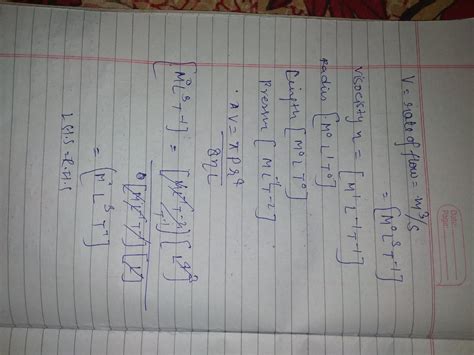 Date:
Page:
V = rate of flow = m³/s
= [M⁰L³T⁻¹]
Viscosity η = [M¹L⁻¹T⁻¹]
radius [M⁰L¹T⁰]
Length [M⁰LT⁰]
Pressure [ML⁻¹T⁻²]
V = π p r⁴
8ηL
[M⁰L³T⁻¹] =
= [M⁰L³T⁻¹]
L.H.S = R.H.S